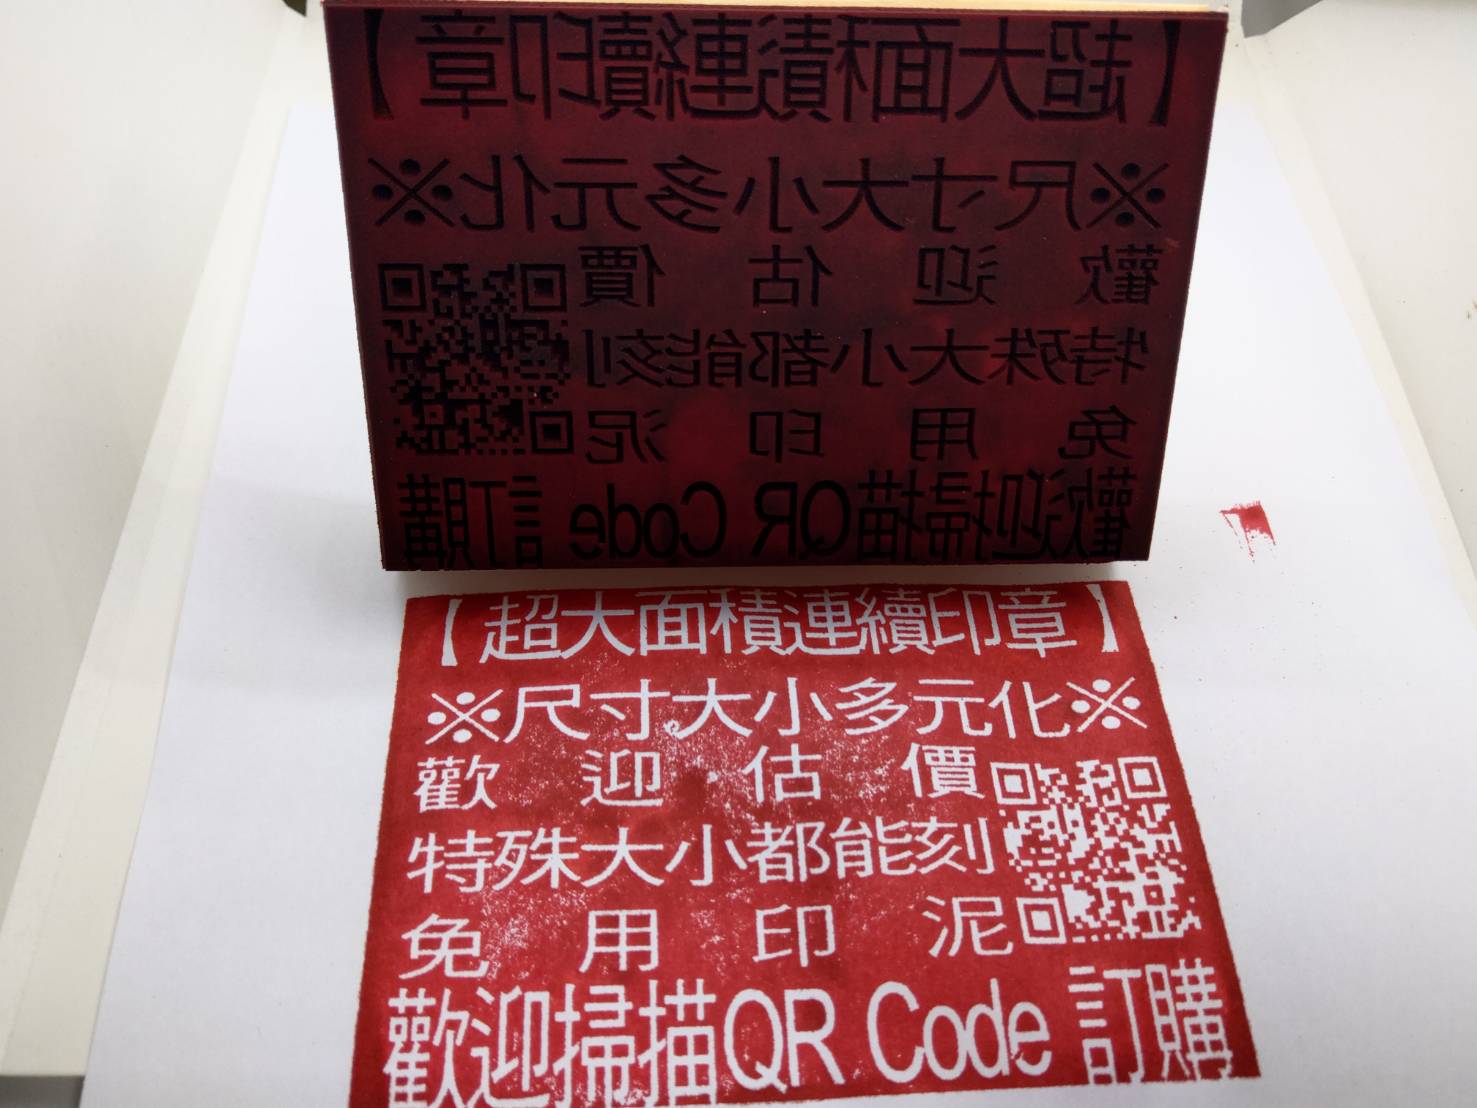 【超大面積連續印章】
※尺寸大小多元化※
歡迎估價
特殊大小都能刻
免用印泥
歡迎掃描QR Code 訂購
【超大面積連續印章】
※尺寸大小多元化※
歡迎估價
特殊大小都能刻
免用印泥
歡迎掃描QR Code 訂購